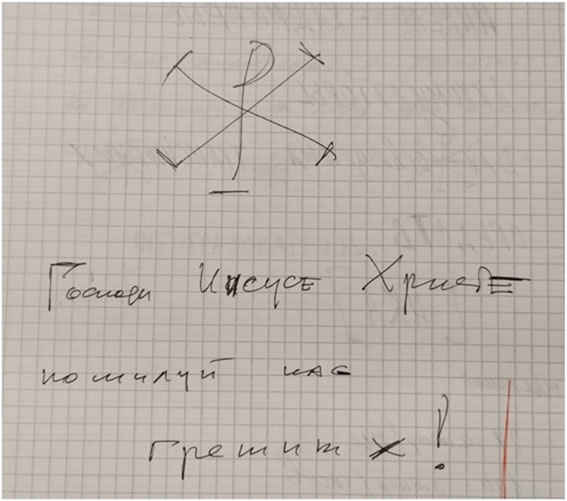 Господи Иисусе Христе
помилуй нас
грешных!